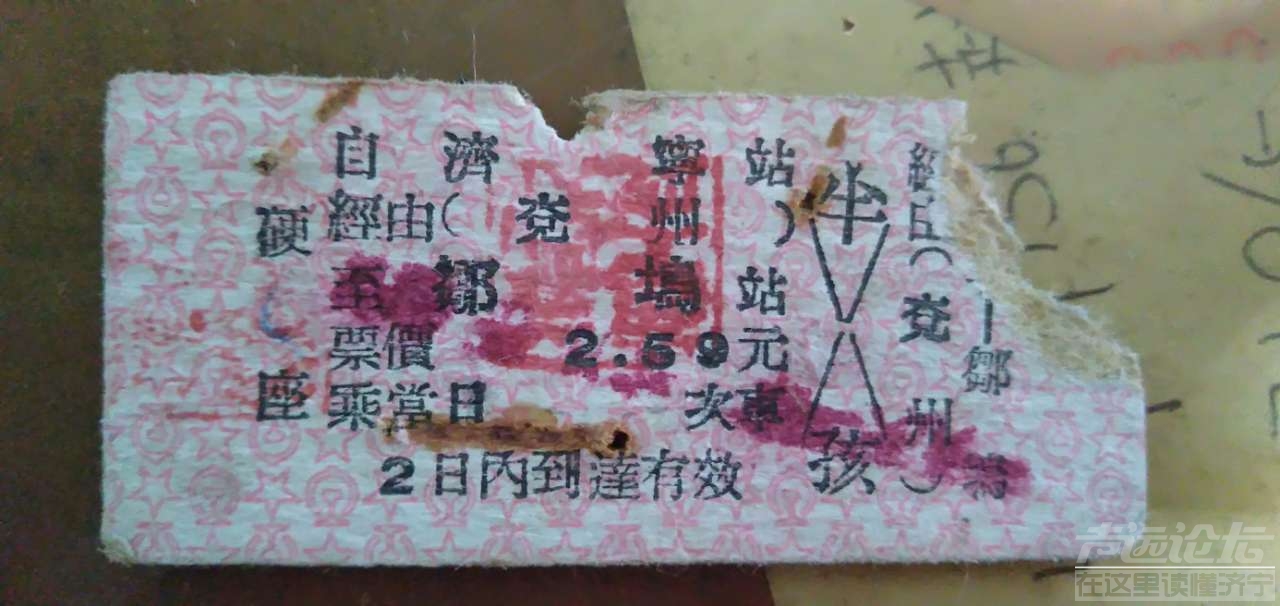 自濟寧站
經由(兗州)
至鄒塢站
票價2.59元
乘當日 次車
2日內到達有效
硬座
半孩
經由(兗州)
鄒塢
在这里读懂济宁